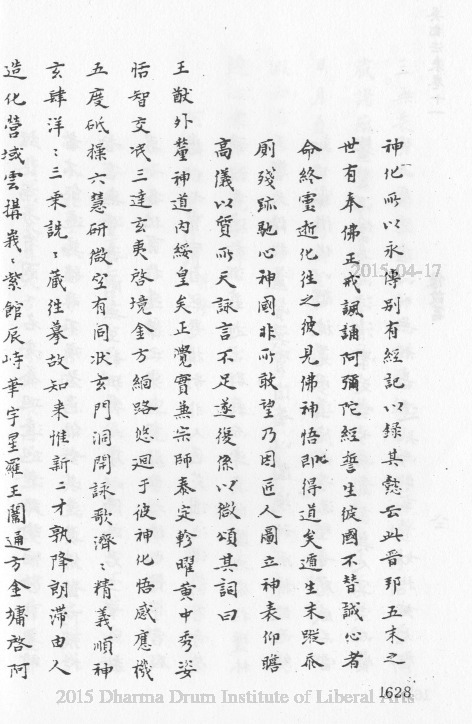 神化所以永傳別有經記以錄其懿云此晉邦五末之
世有奉佛正戒諷誦阿彌陀經誓生彼國不替誠心者
命終靈逝化往之彼見佛神悟即得道矣遁生末蹤忝
厠殘跡馳心神國非所敢望乃因匠人圖立神表仰瞻
高儀以質所天詠言不足遂復係以微頌其詞曰
王猷外釐神道內綏皇矣正覺實兼宗師泰定軫曜黃中秀姿
恬智交泯三達玄夷啓境金方緬路悠迴于彼神化悟感應機
五度砥操六慧研微空有同狀玄門洞開詠歌濟〻精義順神
玄肆洋〻三乘詵〻藏往摹故知來惟新二才孰降朗滯由人
造化營域雲搆峩〻紫館辰峙華宇星羅玉闈通方金墉啓阿
2015-04-17
1628
2015 Dharma Drum Institute of Liberal Arts